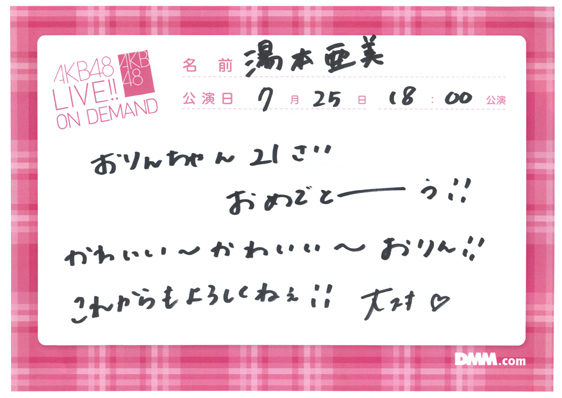 AKB48
LIVE!!
ON DEMAND
AKB
48
名前 湯本亜美
公演日 7月25日 18:00公演
おりんちゃん21さい
おめでとーう!!
かわいい〜かわいい〜おりん!!
これからもよろしくねぇ!! 大スキ♡
DMM.com